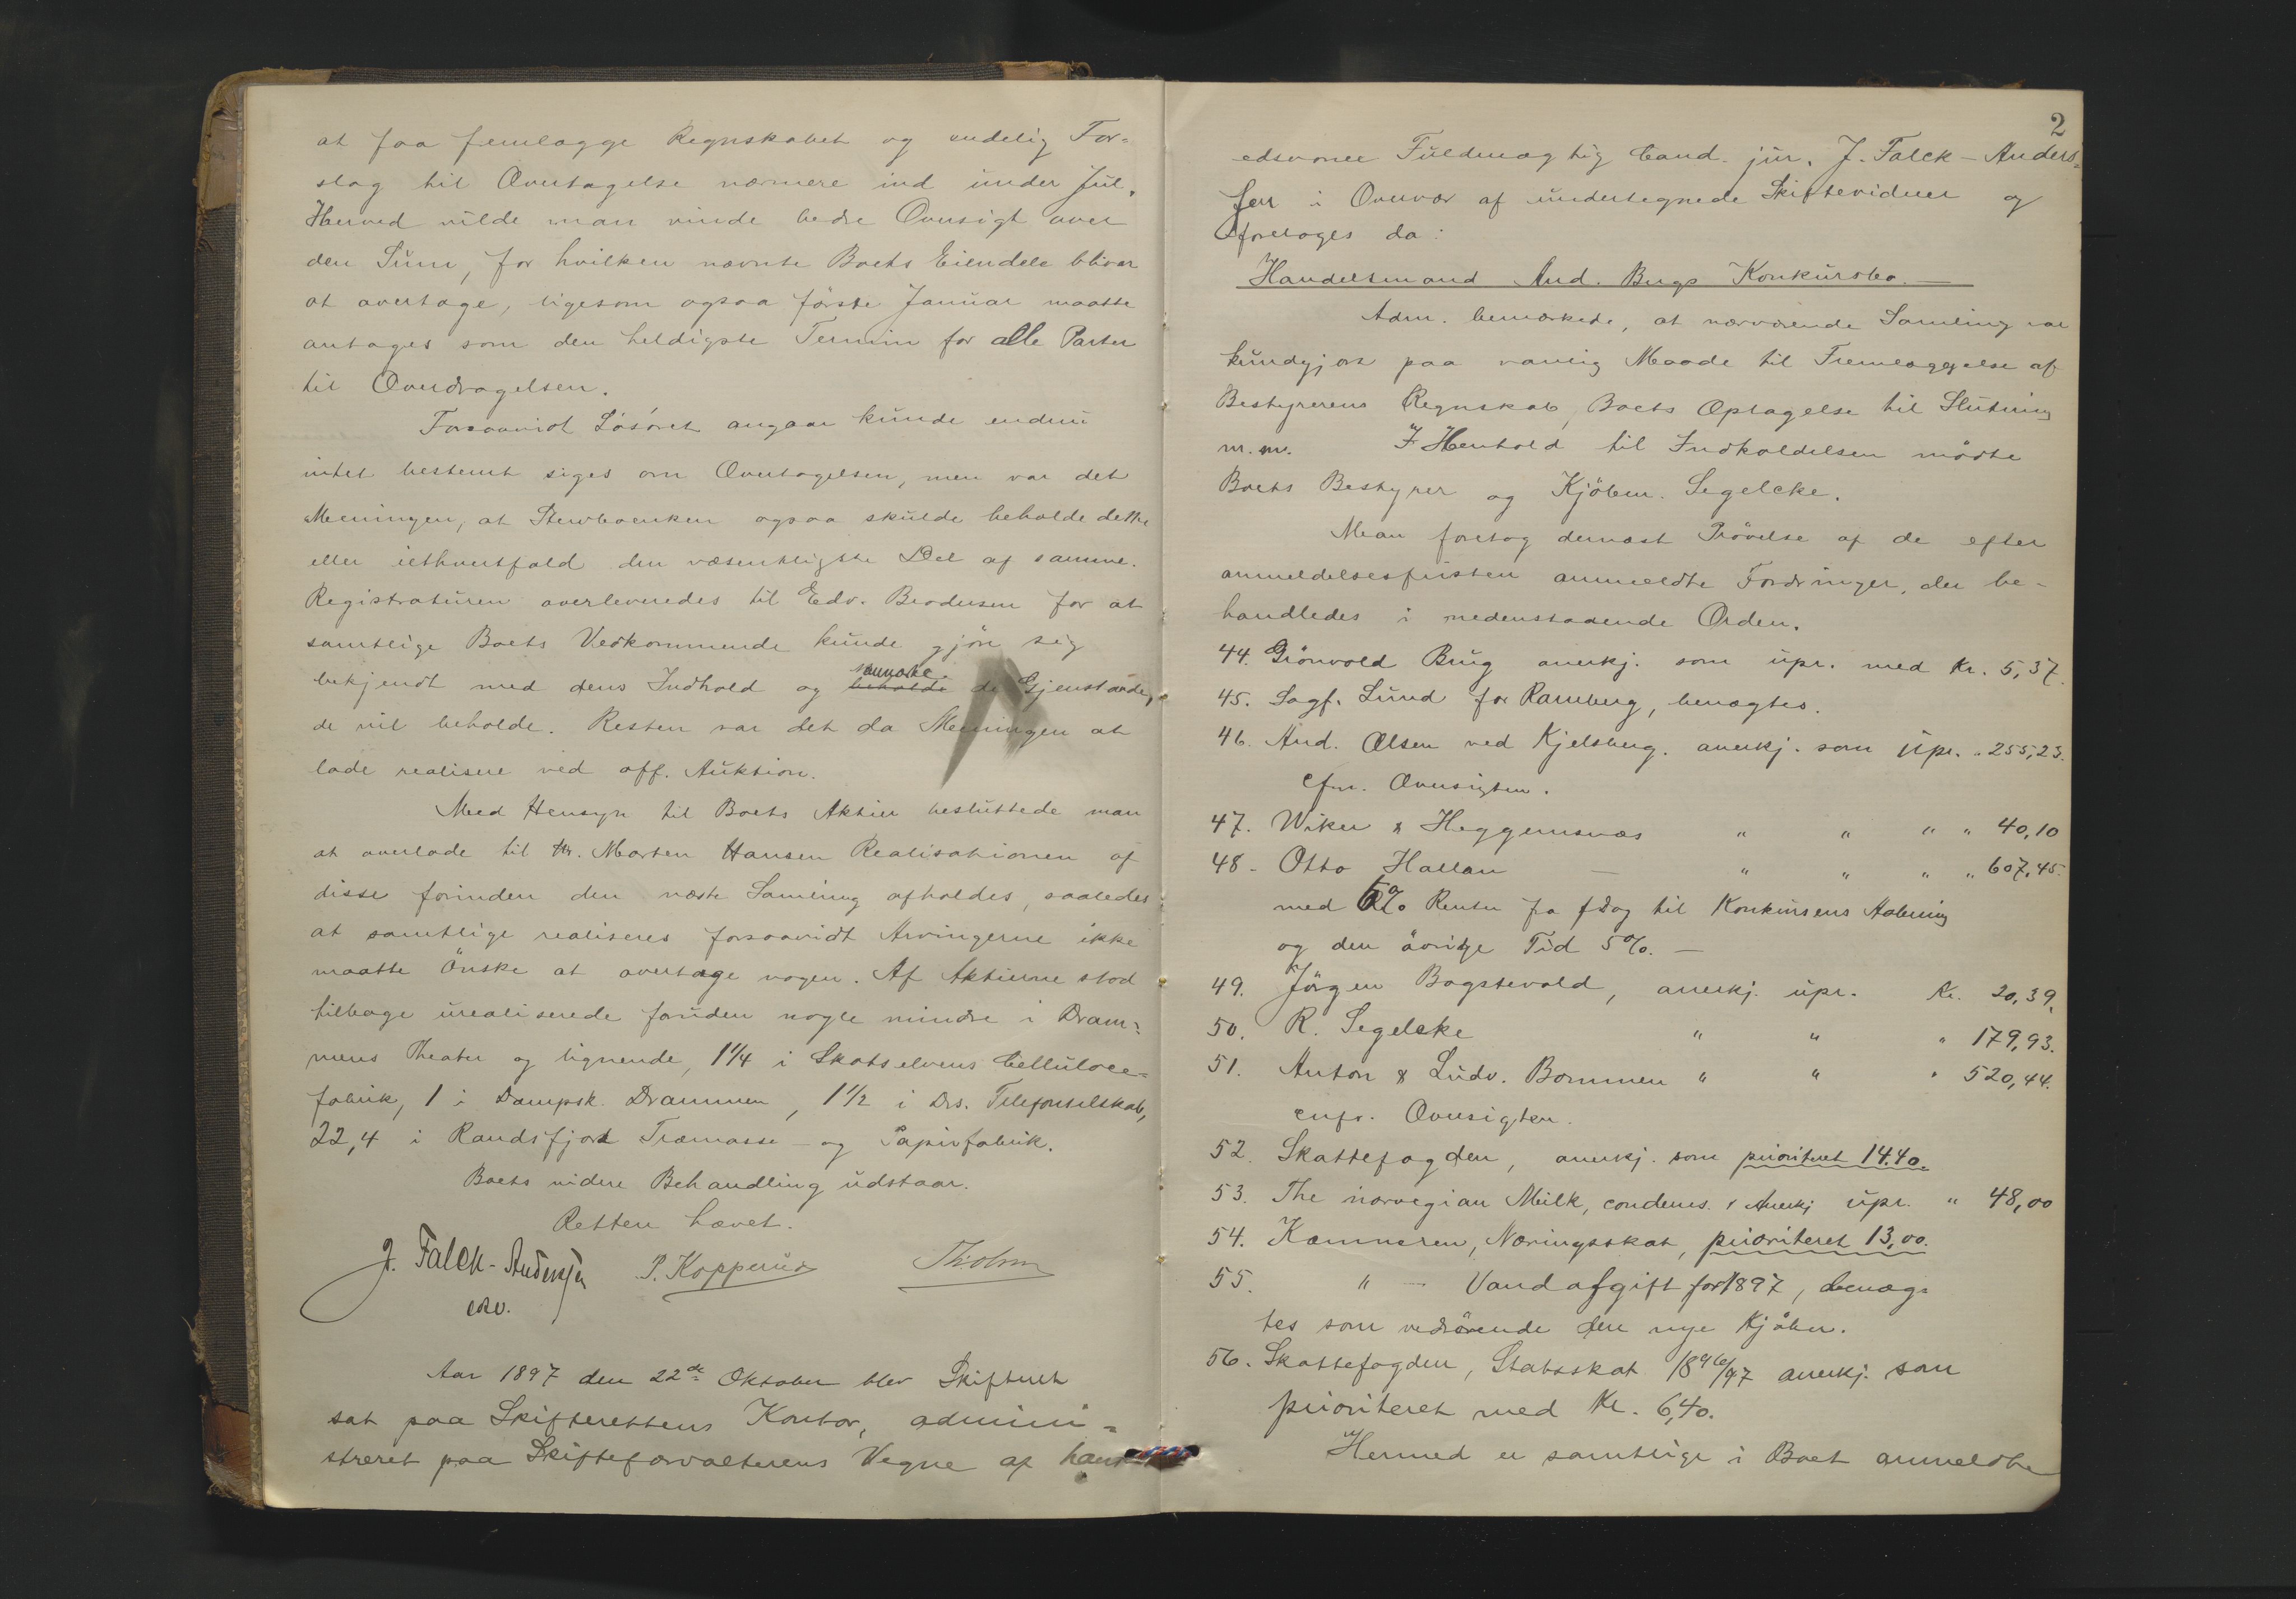 at faa fremlægge Regnskabet og endelig For-
slag til Overtagelse nærmere ind under Jul.
Herved vilde man vinde bedre Oversigt over
den Sum, for hvilken nævnte Boets Eiendele bliver
at overtage, ligesom ogsaa förste Januar maatte
antages som den heldigste Termin for alle Parter
til Overdragelsen.
Forsaavidt Lösöret angaar kunde endnu
intet bestemt siges om Overtagelsen, men var det
Meningen, at Stervboenken ogsaa skulde beholde dette
eller iethvertfald den væsentligste Del af samme.
Registraturen overleveredes til Edv. Brodersen for at
samtlige Boets Vedkommende kunde gjöre sig
bekjendt med dens Indhold og beholde de Gjenstande,
de vil beholde. Resten var det da Meningen at
lade realisere ved off. Auktion.
Med Hensyn til Boets Aktier besluttede man
at overlade til Hr. Morten Hansen Realisationen af
disse forinden den næste Samling afholdes, saaledes
at samtlige realiseres forsaavidt Arvingerne ikke
maatte Önske at overtage nogen. Af Aktierne stod
tilbage urealiserede foruden nogle mindre i Dram-
mens Theater og lignende, 1 1/4 i Skotselvens Cellulose-
fabrik, 1 i Dampsk. Drammen, 1 1/2 i Drs. Telefonselskab,
22,4 i Randsfjord Træmasse- og Papirfabrik.
Boets videre Behandling udstaar.
Retten hævet.
J. Falck-Anderssen P. Kopperud Tholm
edsv.
Aar 1897 den 22de Oktober blev Skifteret
sat paa Skifterettens Kontor, admini-
streret paa Skifteforvalterens Vegne af hans
2
edsvorne Fuldmægtig Cand. jur. J. Falck-Anders-
sen i Overvær af undertegnede Skiftevidner og
foretoges da:
Handelsmand And. Bugs Konkursbo.—
Adm. bemærkede, at nærværende Samling var
kundgjort paa vanlig Maade til Fremlæggelse af
Bestyrerens Regnskab, Boets Optagelse til Slutning
m.m. I Henhold til Indkaldelsen mödte
Boets Bestyrer og Kjöbm. Segelcke.
Man foretog dernæst Prövelse af de efter
anmeldelsesfristen anmeldte Fordringer, der be-
handledes i nedenstaaende Orden.
44. Grönvold Brug anerkj. som upr. med Kr. 5,37.
45. Sagf. Lund for Ramberg, benægtes.
46. And. Olsen ved Kjelsberg. anerkj. som upr. " 255,23.
cfr. Oversigten.
47. Wiker & Heggernsnæs " " " " 40,10
48. Otto Hallan — " " " " 607,45.
med 6% Renter fra f Dag til Konkursens Aabning
og den övrige Tid 5%. —
49. Jörgen Bagstevold, anerkj. upr. Kr. 20,39.
50. R. Segelcke " " " 179,93.
51. Anton & Ludv. Bommen " " " 520,44.
cnfr. Oversigten.
52. Skattefogden, anerkj. som prioriteret 14.40.
53. The norvegian Milk, condens. & Anerkj upr. " 48,00
54. Kæmneren, Næringsskat, prioriteret 13,00.
55. " — Vandafgift for 1897, benæg-
tes som vedrörende den nye Kjöber.
56. Skattefogden, Statsskat 1896/97 anerkj. som
prioriteret med Kr. 6,40.
Hermed er samtlige i Boet anmeldte